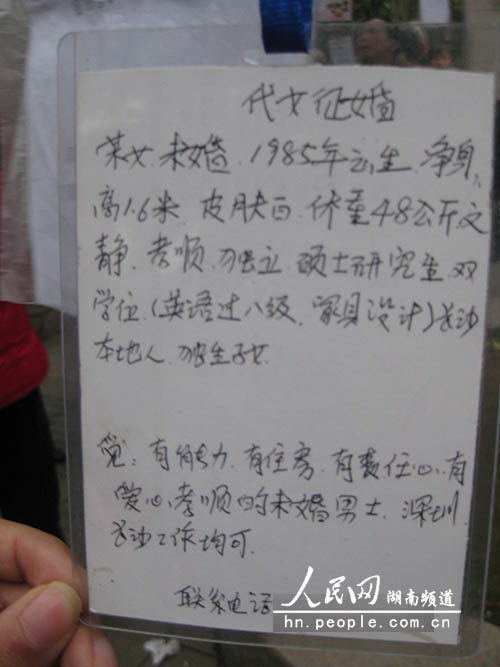 代女征婚
某女.未婚.1985年出生.净身
高1.6米.皮肤白.体重48公斤文
静.孝顺.独立.硕士研究生.双
学位(英语过八级.家具设计)长沙
本地人.独生子女.
觅:有能力.有住房.有责任心.有
爱心.孝顺的未婚男士.深圳.
长沙工作均可.
联系电话
人民网 湖南频道
hn.people.com.cn